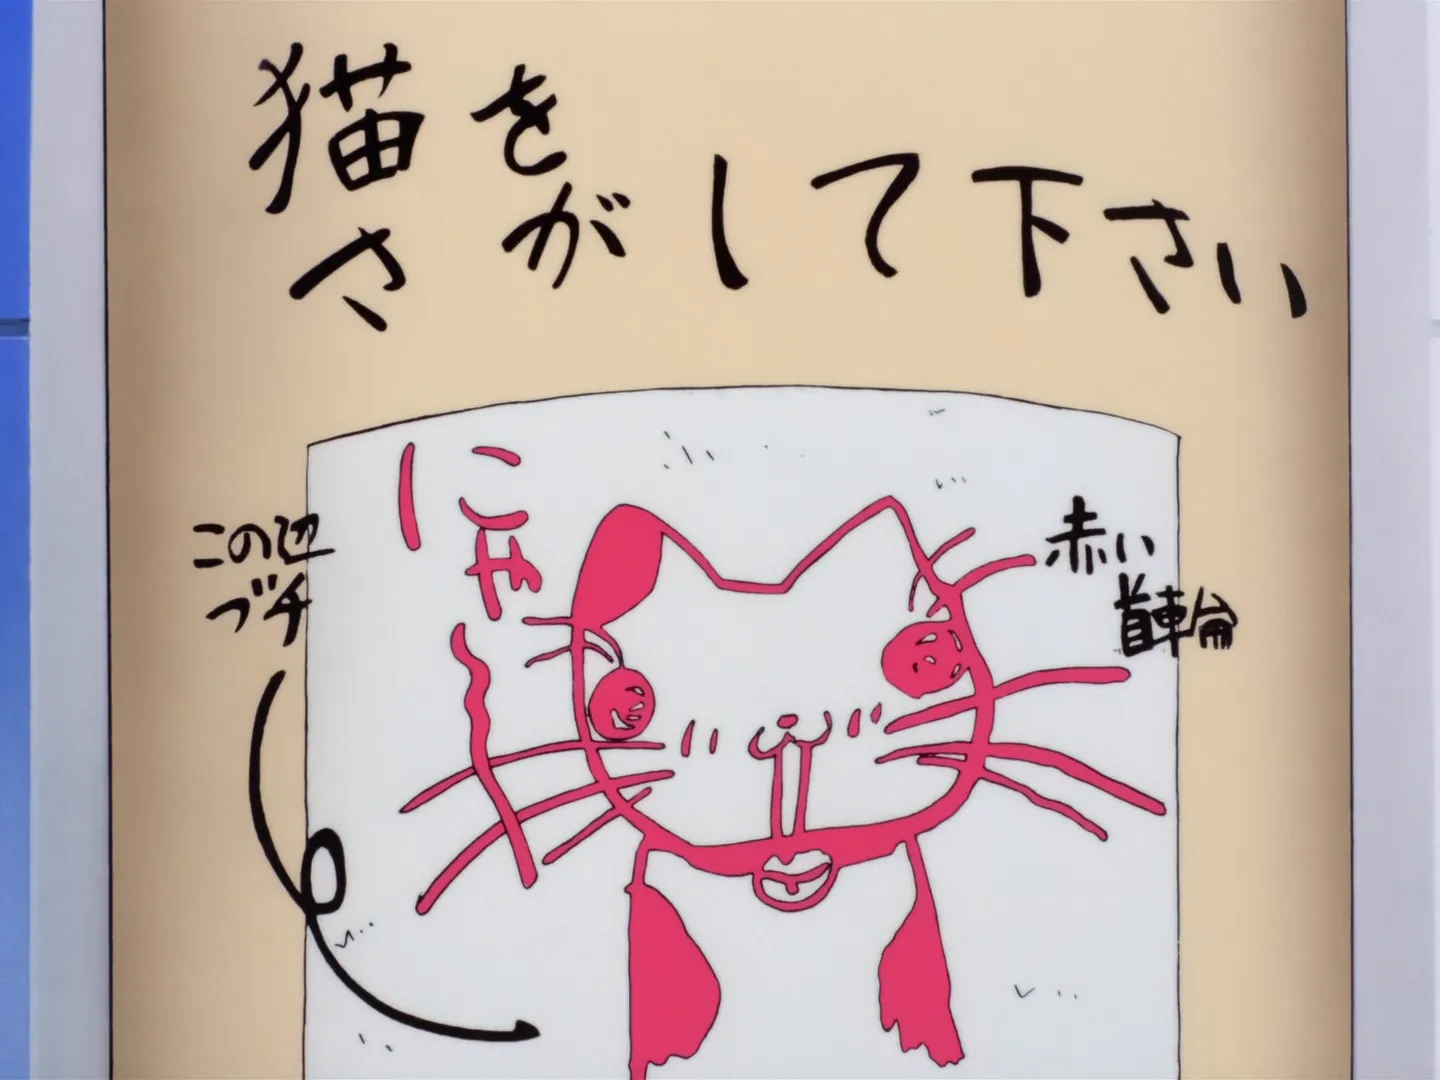 猫を
さがして下さい
にゃ〜
この辺
ブチ
赤い
首輪